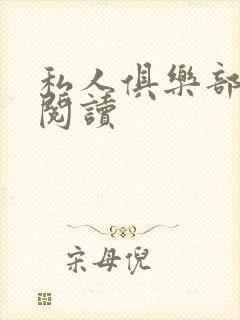 私人俱樂部
閱讀
宋母倪